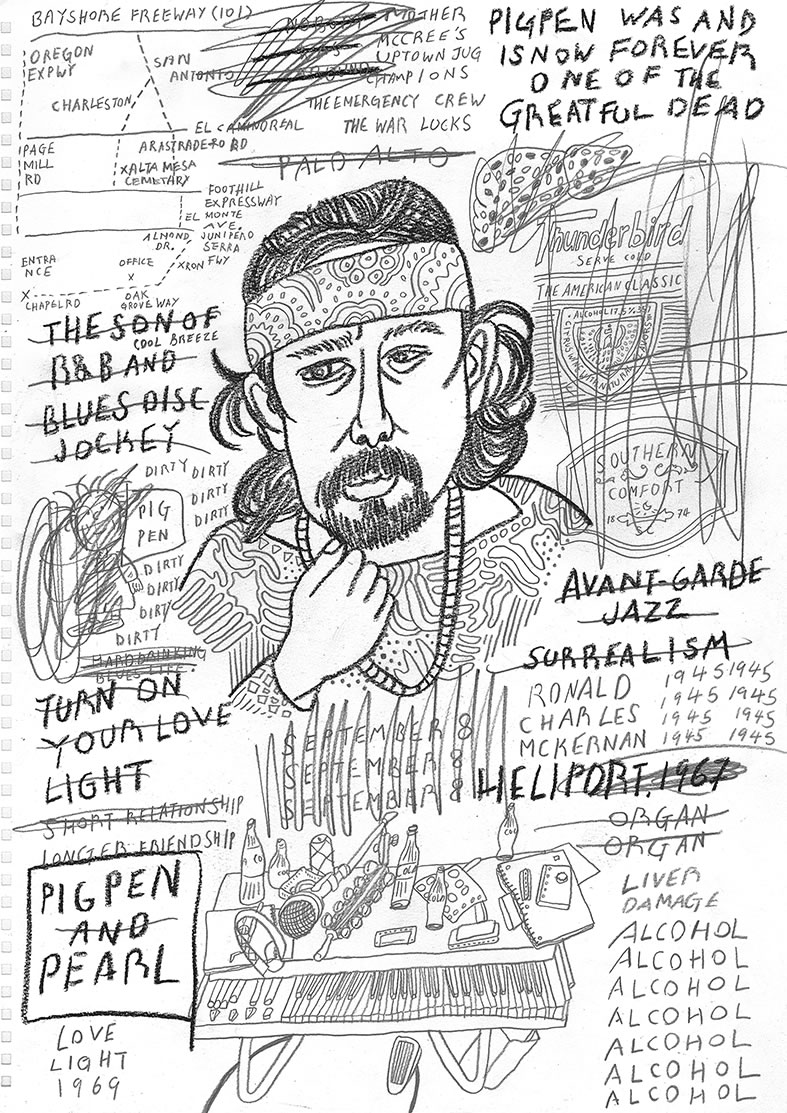 BAYSHORE FREEWAY (101)
OREGON
EXPWY
SAN
ANTONIO
CHARLESTON
EL CAMINOREAL
PAGE
MILL
RD
ARASTRADERO RD
XALTA MESA
CEMETARY
FOOTHILL
EXPRESSWAY
EL MONTE
AVE
ALMOND
DR.
JUNIPERO
SERRA
FWY
ENTRA
NCE
OFFICE
X
XRON
X
CHAPEL RD
OAK
GROVE WAY
MOTHER
MCCREE'S
UPTOWN JUG
CHAMPIONS
THE EMERGENCY CREW
THE WAR LOCKS
PALO ALTO
PIGPEN WAS AND
IS NOW FOREVER
ONE OF THE
GREATFUL DEAD
Thunderbird
SERVE COLD
THE AMERICAN CLASSIC
SOUTHERN
COMFORT
18 74
THE SON OF
COOL BREEZE
R&B AND
BLUES DISC
JOCKEY
DIRTY DIRTY
DIRTY
DIRTY
PIG
PEN
DIRTY
DIRTY
DIRTY
DIRTY
HARD DRINKING
BLUES LIFE
TURN ON
YOUR LOVE
LIGHT
SHORT RELATIONSHIP
LONGER FRIENDSHIP
PIGPEN
AND
PEARL
LOVE
LIGHT
1969
AVANT-GARDE
JAZZ
SURREALISM
RONALD 1945 1945
CHARLES 1945 1945
MCKERNAN 1945 1945
1945 1945
SEPTEMBER 8
SEPTEMBER 8
SEPTEMBER 8
HELIPORT, 1967
ORGAN
ORGAN
LIVER
DAMAGE
ALCOHOL
ALCOHOL
ALCOHOL
ALCOHOL
ALCOHOL
ALCOHOL
ALCOHOL